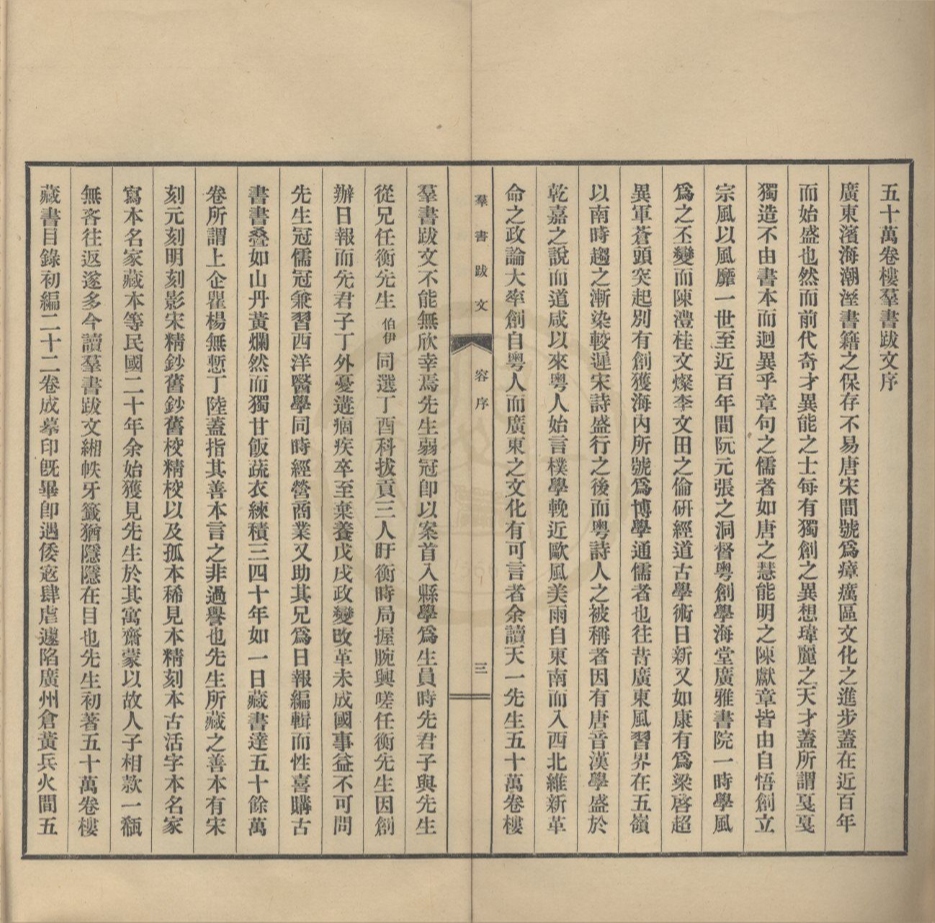 五十萬卷樓羣書跋文序
廣東濱海潮溼書籍之保存不易唐宋間號爲瘴癘區文化之進步蓋在近百年
而始盛也然而前代奇才異能之士每有獨創之異想瑋麗之天才蓋所謂戛戛
獨造不由書本而迥異乎章句之儒者如唐之慧能明之陳獻章皆由自悟創立
宗風以風靡一世至近百年間阮元張之洞督粵創學海堂廣雅書院一時學風
爲之丕變而陳澧桂文燦李文田之倫硏經道古學術日新又如康有爲梁啓超
異軍蒼頭突起別有創獲海內所號爲博學通儒者也往昔廣東風習界在五嶺
以南時趨之漸染較遲宋詩盛行之後而粵詩人之被稱者因有唐音漢學盛於
乾嘉之說而道咸以來粵人始言樸學輓近歐風美雨自東南而入西北維新革
命之政論大率創自粵人而廣東之文化有可言者余讀天一先生五十萬卷樓
羣書跋文 容序 三
羣書跋文不能無欣幸焉先生弱冠卽以案首入縣學爲生員時先君子與先生
從兄任衡先生伯伊同選丁酉科拔貢三人盱衡時局握腕興嗟任衡先生因創
辦日報而先君子丁外憂遘痼疾卒至棄養戊戌政變改革未成國事益不可問
先生冠儒冠兼習西洋醫學同時經營商業又助其兄爲日報編輯而性喜購古
書書叠如山丹黃爛然而獨甘飯蔬衣練積三四十年如一日藏書達五十餘萬
卷所謂上企瞿楊無慙丁陸蓋指其善本言之非過譽也先生所藏之善本有宋
刻元刻明刻影宋精鈔舊鈔舊校精校以及孤本稀見本精刻本古活字本名家
寫本名家藏本等民國二十年余始獲見先生於其寓齋蒙以故人子相款一瓻
無吝往返遂多今讀羣書跋文緗帙牙籤猶隱隱在目也先生初著五十萬卷樓
藏書目錄初編二十二卷成摹印旣畢卽遇倭寇肆虐遽陷廣州倉黃兵火間五